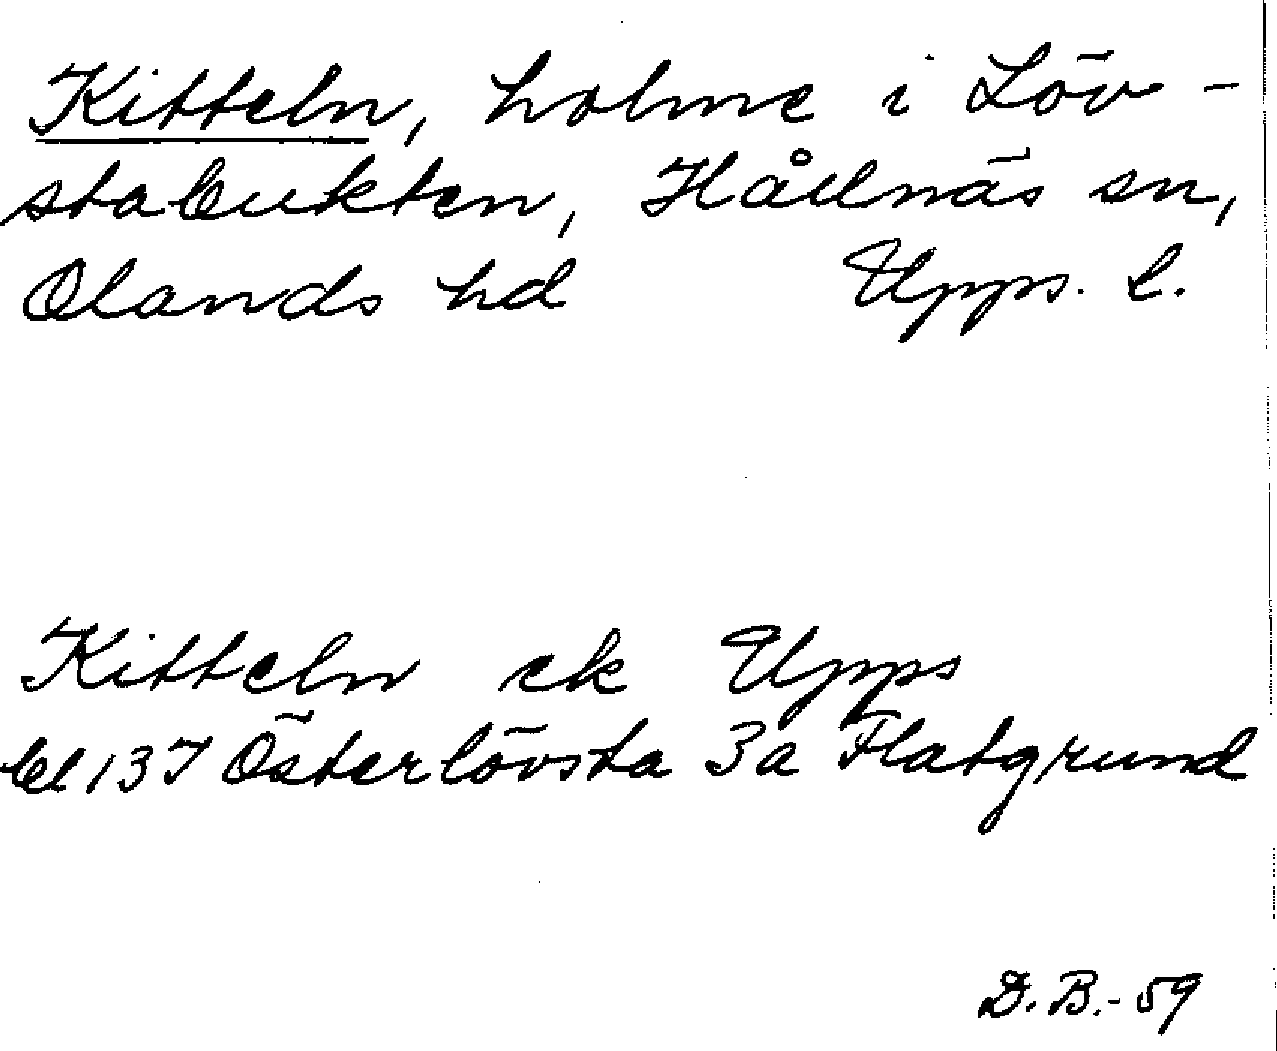 Kitteln, holme i Löv-
stabukten, Hållnäs sn,
Olands hd Upps. l.
Kitteln ek Upps
bl 137 Österlövsta 3a Flatgrund
D.B.-59